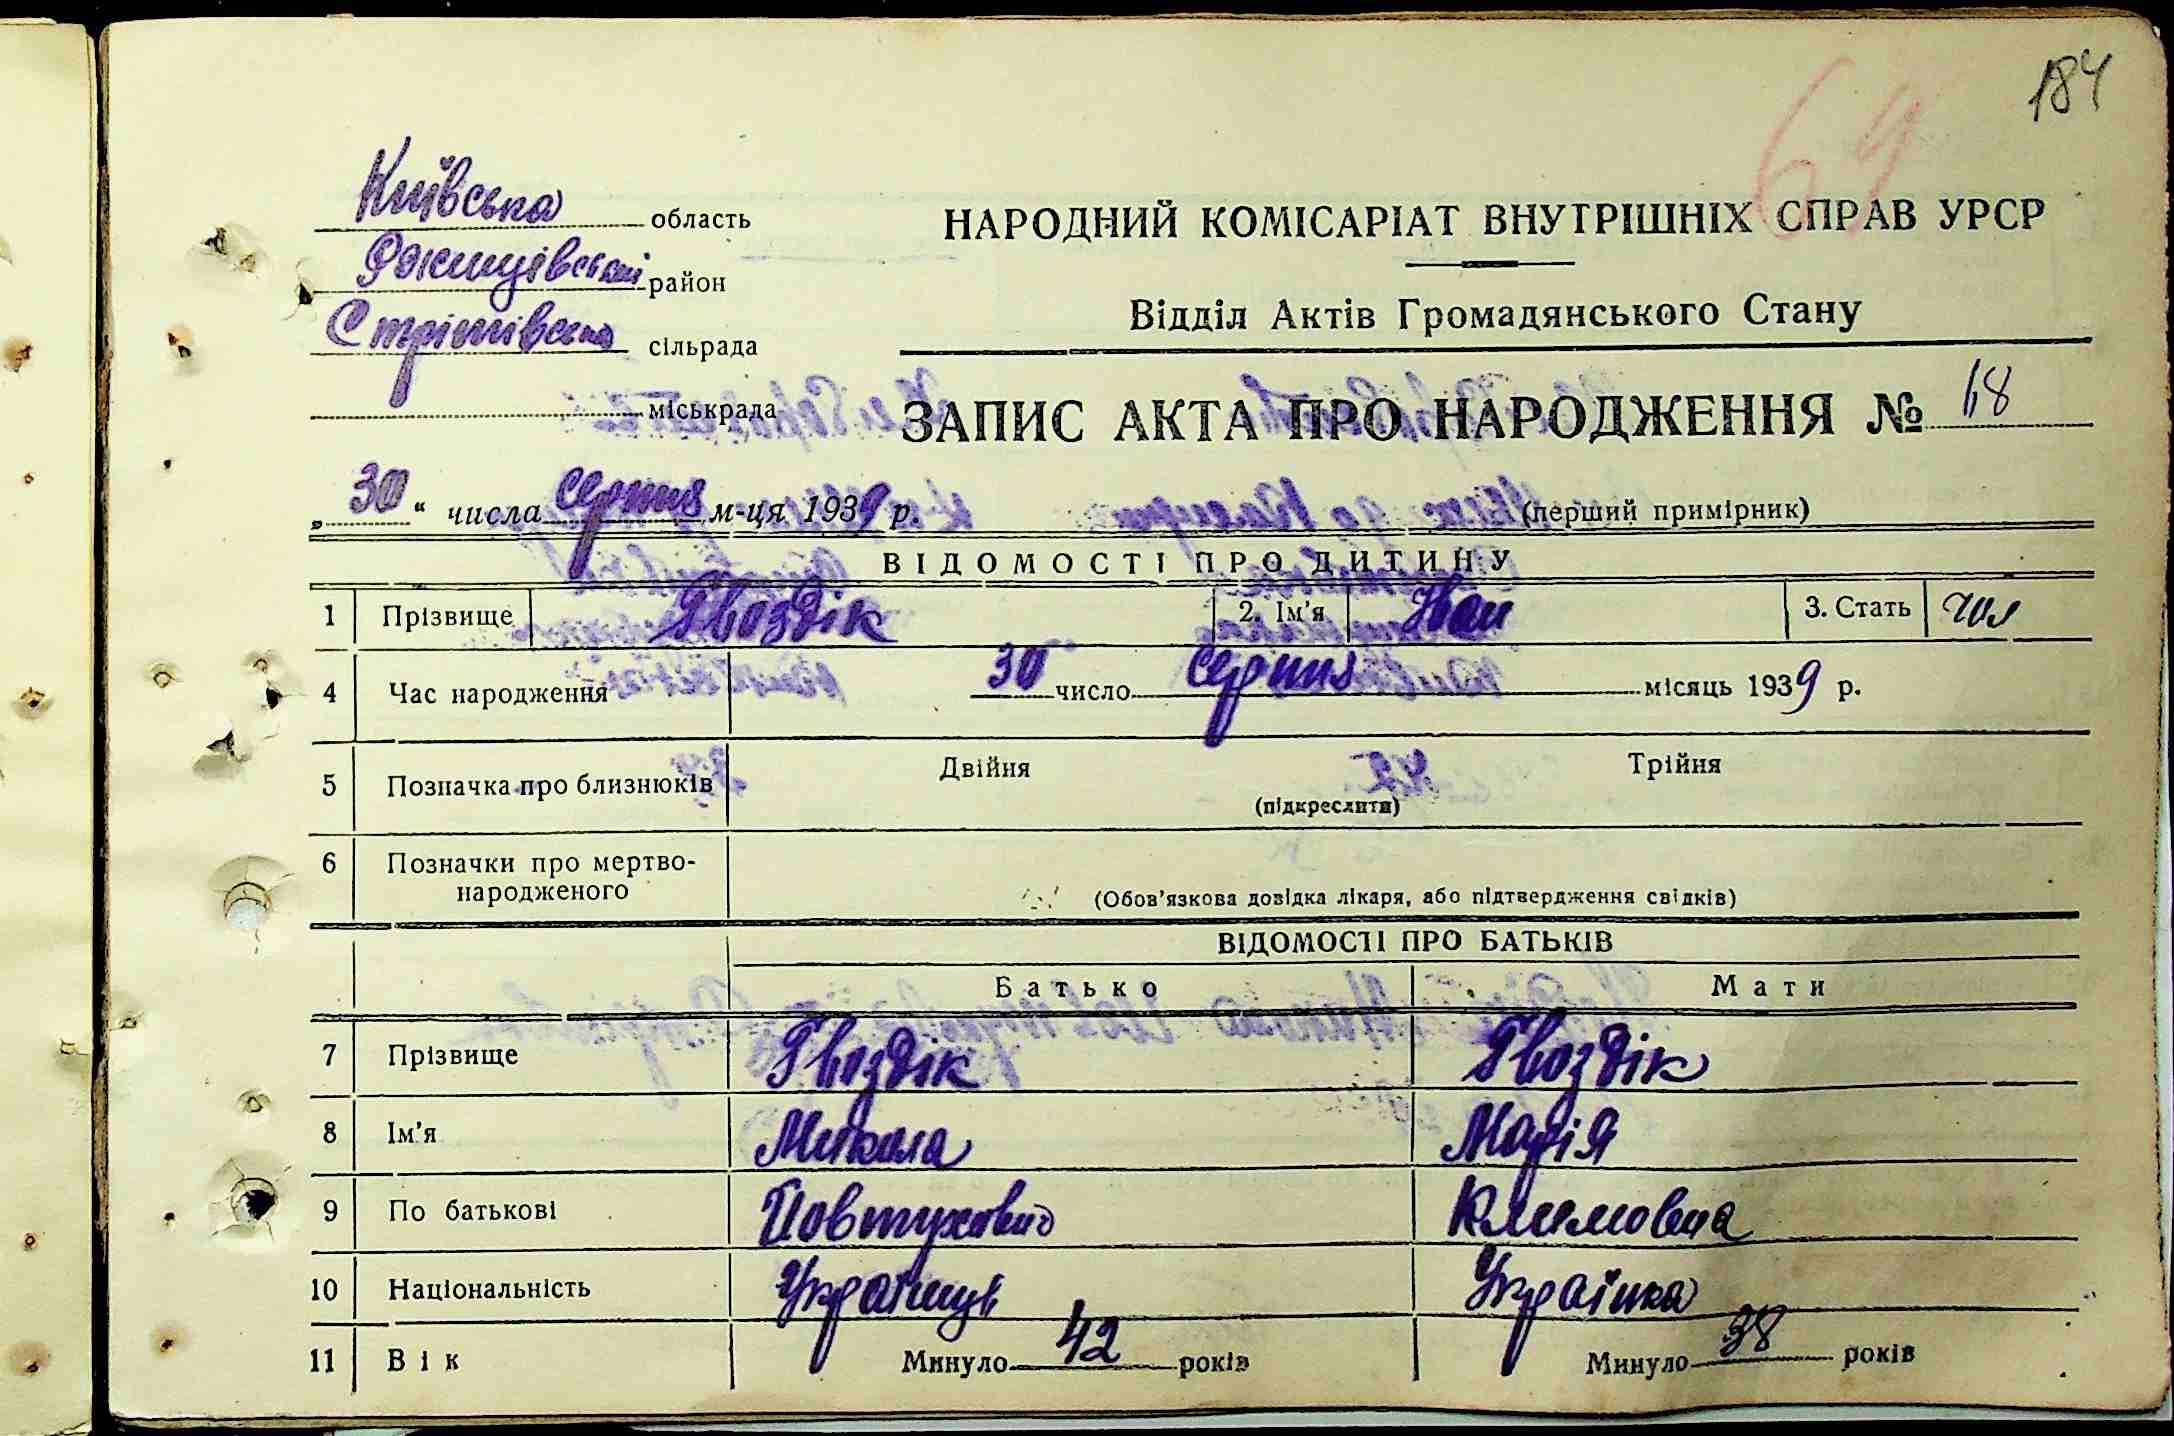 184
69
Київська область
Ржищівський район
Стрітівська сільрада
міськрада
НАРОДНИЙ КОМІСАРІАТ ВНУТРІШНІХ СПРАВ УРСР
Відділ Актів Громадянського Стану
ЗАПИС АКТА ПРО НАРОДЖЕННЯ № 68
„30“ числа серпня м-ця 1939 р.
(перший примірник)
ВІДОМОСТІ ПРО ДИТИНУ
1 Прізвище Гвоздік 2. Ім’я Іван 3. Стать чол
4 Час народження 30 число серпня місяць 1939 р.
5 Позначка про близнюків Двійня Трійня
(підкреслити)
6 Позначки про мертво-
народженого
(Обов’язкова довідка лікаря, або підтвердження свідків)
ВІДОМОСТІ ПРО БАТЬКІВ
Батько Мати
7 Прізвище Гвоздік Гвоздік
8 Ім’я Микола Марія
9 По батькові Йовтухович Климовна
10 Національність Українець Українка
11 Вік Минуло 42 років Минуло 38 років